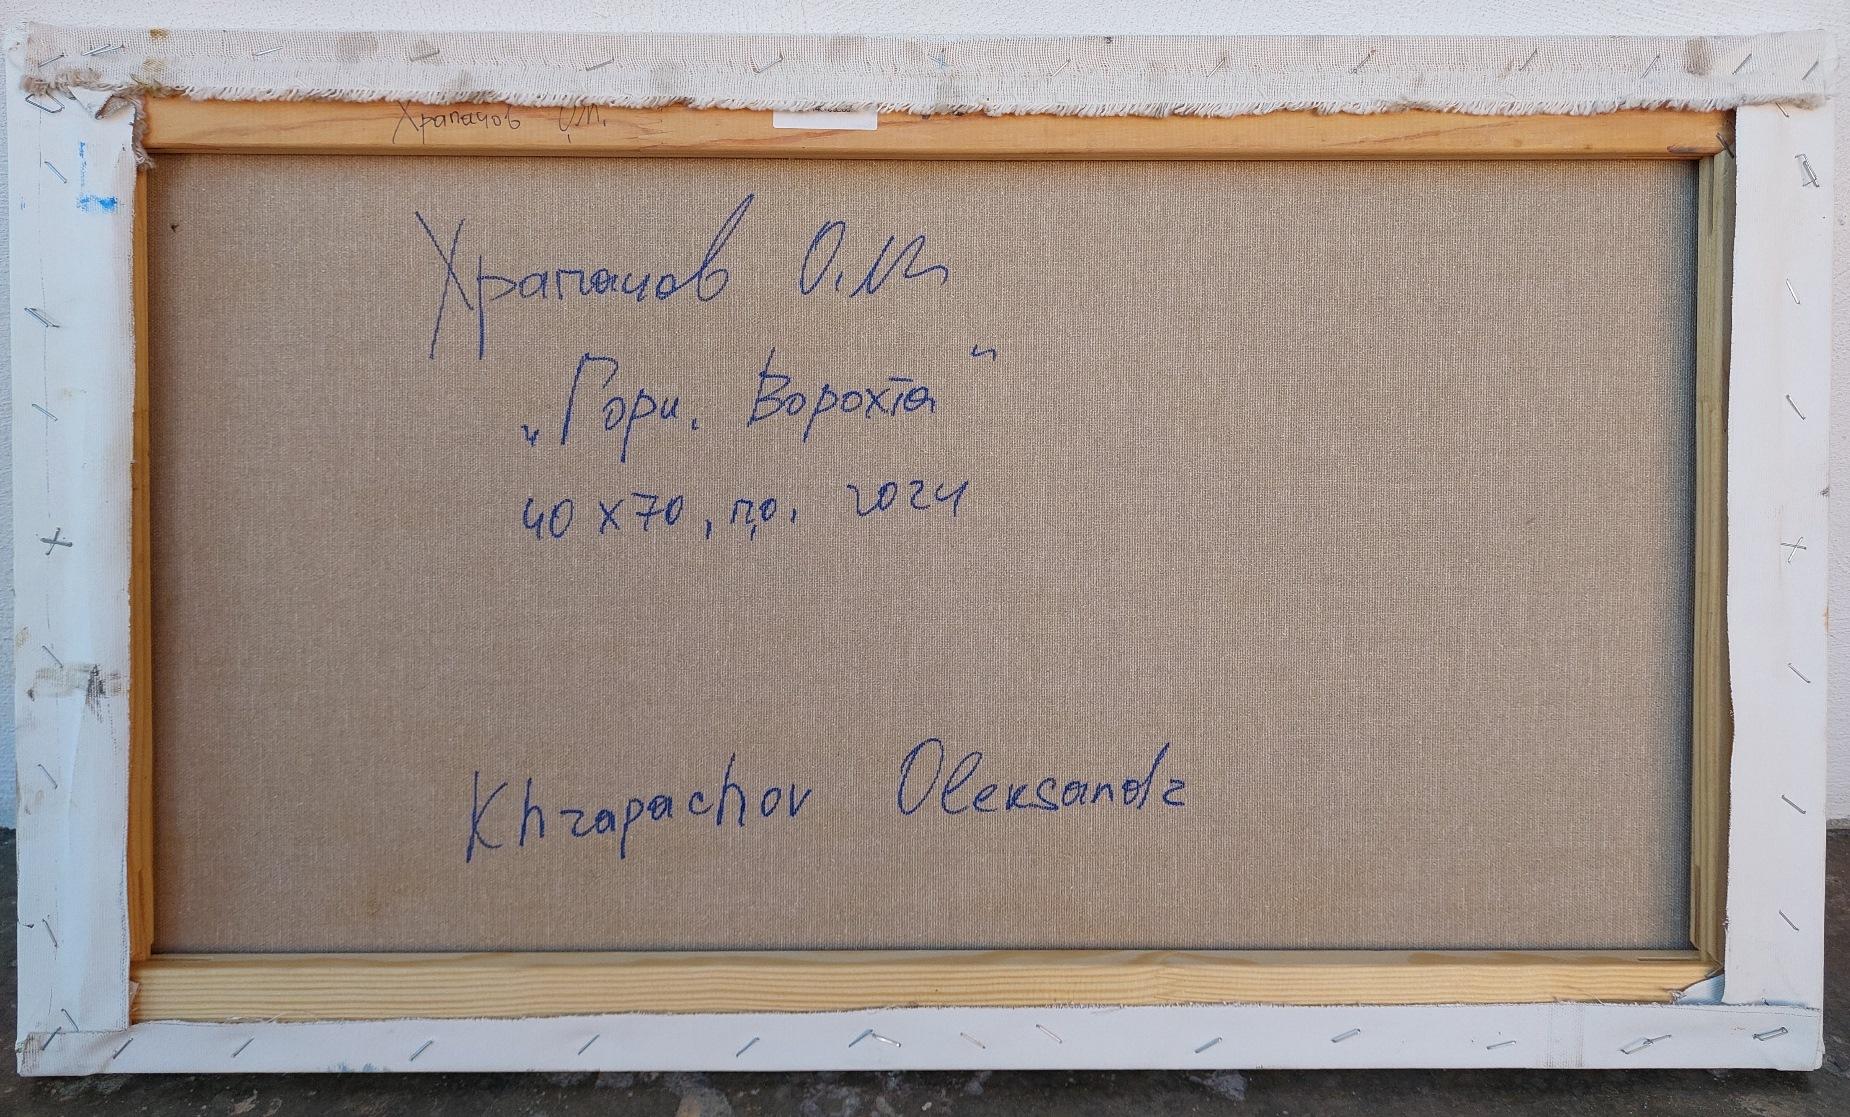 Храпачов О.М.
Храпачов О.М
„Гори. Ворохта“
40 х 70, п,о. 2024
Khrapachov Oleksandr